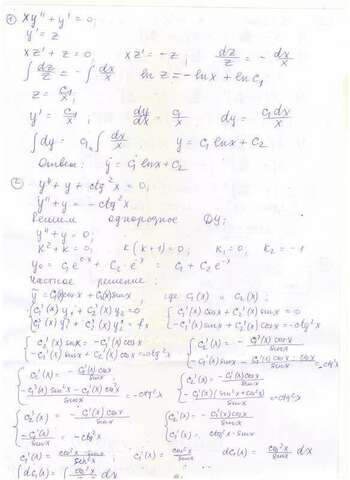 ① xy'' + y' = 0;
y' = z
xz' + z = 0; xz' = -z; dz/z = -dx/x
∫ dz/z = -∫ dx/x ln z = -ln x + ln C₁
z = C₁/x;
y' = C₁/x; dy/dx = C₁/x dy = C₁dx/x
∫dy = C₁∫ dx/x y = C₁ ln x + C₂
Ответ: y = C₁ ln x + C₂
② y'' + y + ctg²x = 0;
y'' + y = -ctg²x
Решим однородное ДУ;
y'' + y = 0;
k² + k = 0; k(k+1) = 0; k₁ = 0; k₂ = -1
y₀ = C₁e^(0·x) + C₂·e^(-x) = C₁ + C₂e^(-x)
Частное решение:
y = C₁(x)cos x + C₂(x)sin x, где C₁(x) = C₂(x);
{ C₁'(x) y₁ + C₂'(x) y₂ = 0 { C₁'(x)cos x + C₂'(x)sin x = 0
{ C₁'(x) y₁' + C₂'(x) y₂' = fx { -C₁'(x)sin x + C₂'(x)cos x = -ctg²x
{ C₂'(x)sin x = -C₁'(x)cos x { C₂'(x) = -C₁'(x)cos x/sin x
{ -C₁'(x)sin x + C₂'(x)cos x = -ctg²x { -C₁'(x)sin x - C₁'(x)cos x·cos x/sin x = -ctg²x
{ C₂'(x) = -C₁'(x)cos x/sin x { C₂'(x) = -C₁'(x)cos x/sin x
{ -C₁'(x)sin²x - C₁'(x)cos²x/sin x = -ctg²x { -C₁'(x)(sin²x + cos²x)/sin x = -ctg²x
{ C₂'(x) = -C₁'(x)cos x/sin x { C₂'(x) = -C₁'(x)cos x/sin x
{ -C₁'(x)/sin x = -ctg²x { C₁'(x) = ctg²x·sin x
C₁'(x) = cos²x·sin x/sin²x; C₁'(x) = cos²x/sin x; dC₁(x) = cos²x/sin x dx
∫dC₁(x) = ∫ cos²x/sin x dx